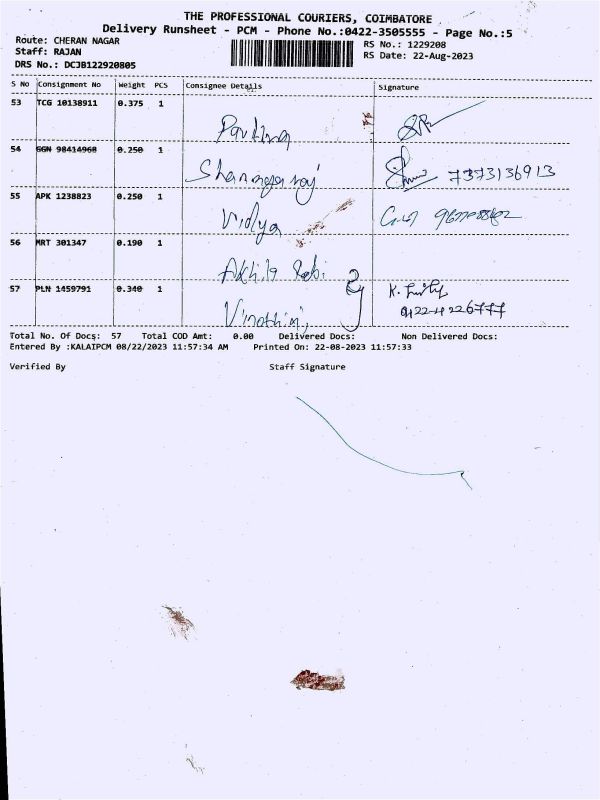 THE PROFESSIONAL COURIERS, COIMBATORE
Delivery Runsheet - PCM - Phone No.:0422-3505555 - Page No.:5
Route: CHERAN NAGAR
Staff: RAJAN
DRS No.: DCJB122920805
RS No.: 1229208
RS Date: 22-Aug-2023
S No Consignment No Weight PCS Consignee Details Signature
53 TCG 10138911 0.375 1
54 GGN 98414968 0.250 1
Shanmugaraj 7373136913
55 APK 1238823 0.250 1
Vidya
56 MRT 301347 0.190 1
Akhila
57 PLN 1459791 0.340 1
Vinothini
Total No. Of Docs: 57 Total COD Amt: 0.00 Delivered Docs: Non Delivered Docs:
Entered By :KALAIPCM 08/22/2023 11:57:34 AM Printed On: 22-08-2023 11:57:33
Verified By Staff Signature